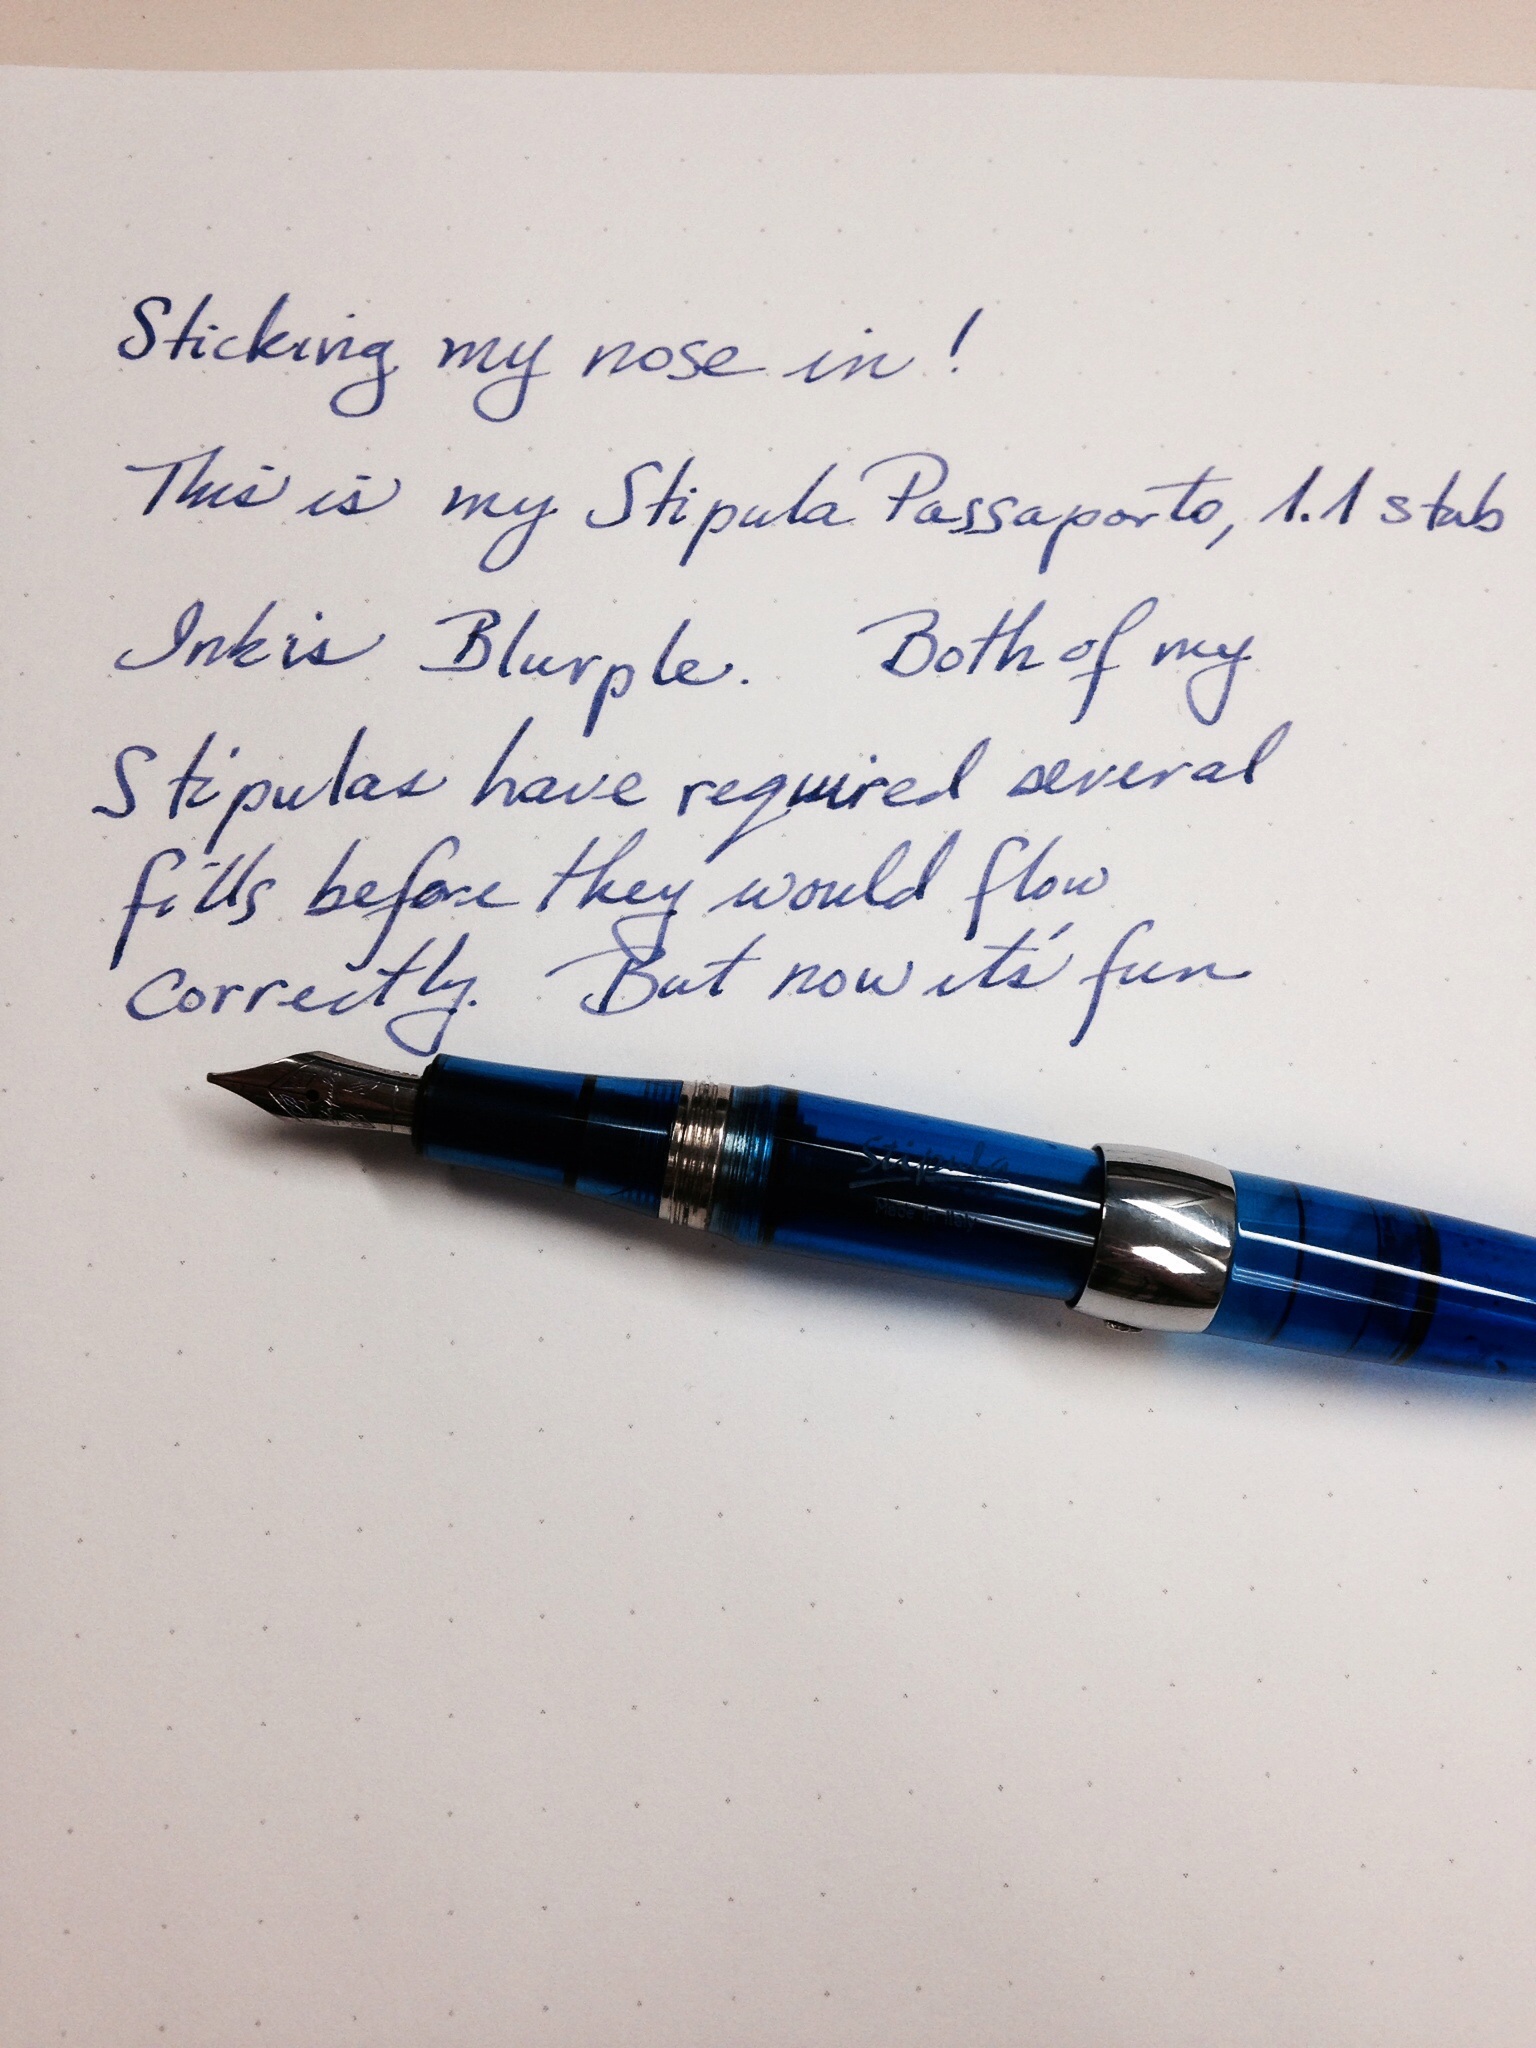 Sticking my nose in!
This is my Stipula Passaporto, 1.1 stub
Ink is Blurple. Both of my
Stipulas have required several
fills before they would flow
correctly. But now it's fun
Stipula
Made in Italy